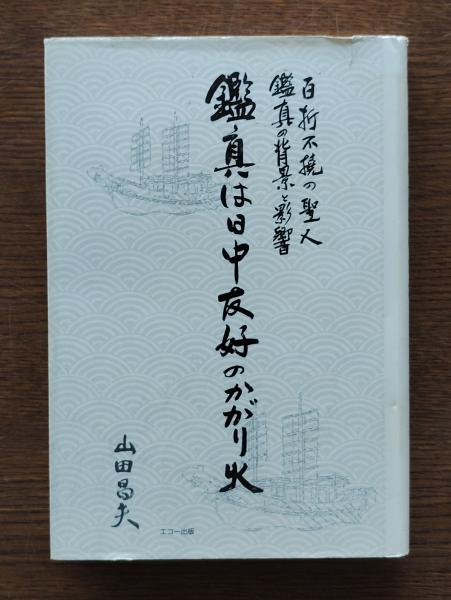 百折不撓の聖人
鑑真の背景と影響
鑑真は日中友好のかがり火
山田昌夫
エコー出版